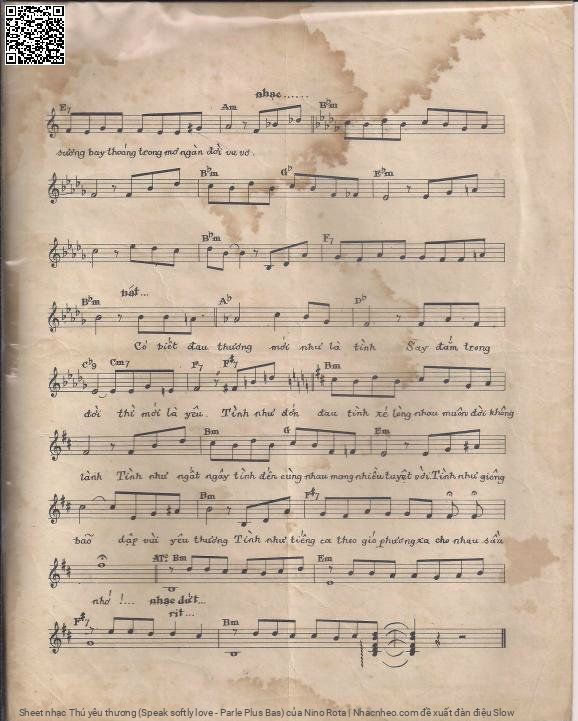 nhạc......
E7 Am Bbm
sướng bay thoáng trong mơ ngàn đời vu vơ.
Bbm Gb Ebm
Bbm F7
hát...
Bbm Ab Db
Có biết đau thương mới như là tình Say đắm trong
Cm7 F7 F#7 Bm
đời thì mới là yêu. Tình như đớn đau tình xé lòng nhau muôn đời không
Bm G Em
lành Tình như ngất ngây tình đến cùng nhau mang nhiều tuyệt vời. Tình như giông
Bm F#7
bão dập vùi yêu thương Tình như tiếng ca theo gió phương xa cho nhau sầu
Bm Em
nhớ !... nhạc dứt...
rit...
F#7 Bm
Sheet nhạc Thú yêu thương (Speak softly love - Parle Plus Bas) của Nino Rota | Nhacnheo.com đề xuất đàn điệu Slow